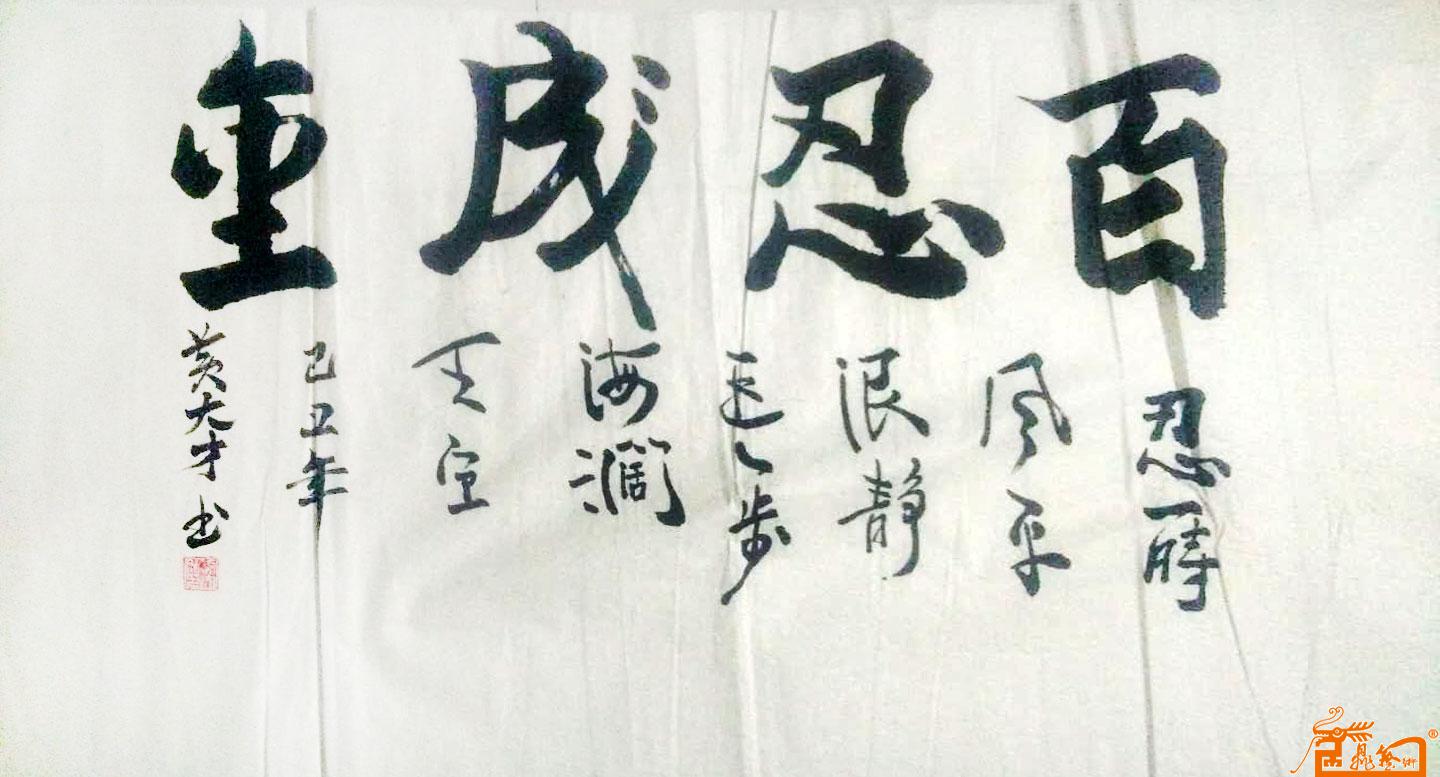 百忍成金
忍一時
风平
浪静
退一步
海濶
天空
己丑年
黄大才书